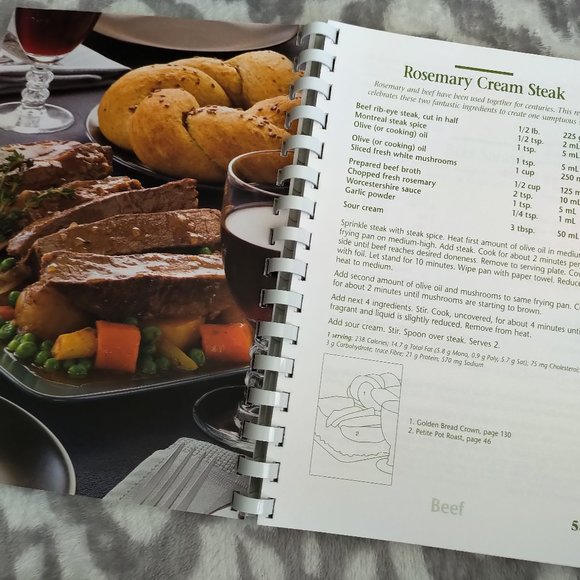 Rosemary Cream Steak
Rosemary and beef have been used together for centuries. This re
celebrates these two fantastic ingredients to create one sumptuous
Beef rib-eye steak, cut in half 1/2 lb. 225
Montreal steak spice 1/2 tsp. 2 mL
Olive (or cooking) oil 1 tsp. 5 mL
Olive (or cooking) oil 1 tsp. 5 mL
Sliced fresh white mushrooms 1 cup 250 m
Prepared beef broth 1/2 cup 125 m
Chopped fresh rosemary 2 tsp. 10 mL
Worcestershire sauce 1 tsp. 5 mL
Garlic powder 1/4 tsp. 1 mL
Sour cream 3 tbsp. 50 mL
Sprinkle steak with steak spice. Heat first amount of olive oil in medium
frying pan on medium-high. Add steak. Cook for about 2 minutes per
side until beef reaches desired doneness. Remove to serving plate. Co
with foil. Let stand for 10 minutes. Wipe pan with paper towel. Reduce
heat to medium.
Add second amount of olive oil and mushrooms to same frying pan. C
for about 2 minutes until mushrooms are starting to brown.
Add next 4 ingredients. Stir. Cook, uncovered, for about 4 minutes unti
fragrant and liquid is slightly reduced. Remove from heat.
Add sour cream. Stir. Spoon over steak. Serves 2.
1 serving: 238 Calories; 14.7 g Total Fat (5.8 g Mono, 0.9 g Poly, 5.7 g Sat); 75 mg Cholesterol;
3 g Carbohydrate; trace Fibre; 21 g Protein; 570 mg Sodium
1. Golden Bread Crown, page 130
2. Petite Pot Roast, page 46
2
Beef
5